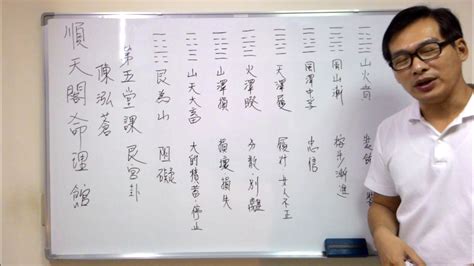 順天閣命理館
陳泓蒼
第五堂課 艮宮卦
艮為山 阻礙
山天大畜 大財積蓄停止
山澤損 損壞損失
火澤睽 分散.別離
天澤履 履行女人不正
風澤中孚 忠信
風山漸 步漸進
山火賁 裝飾